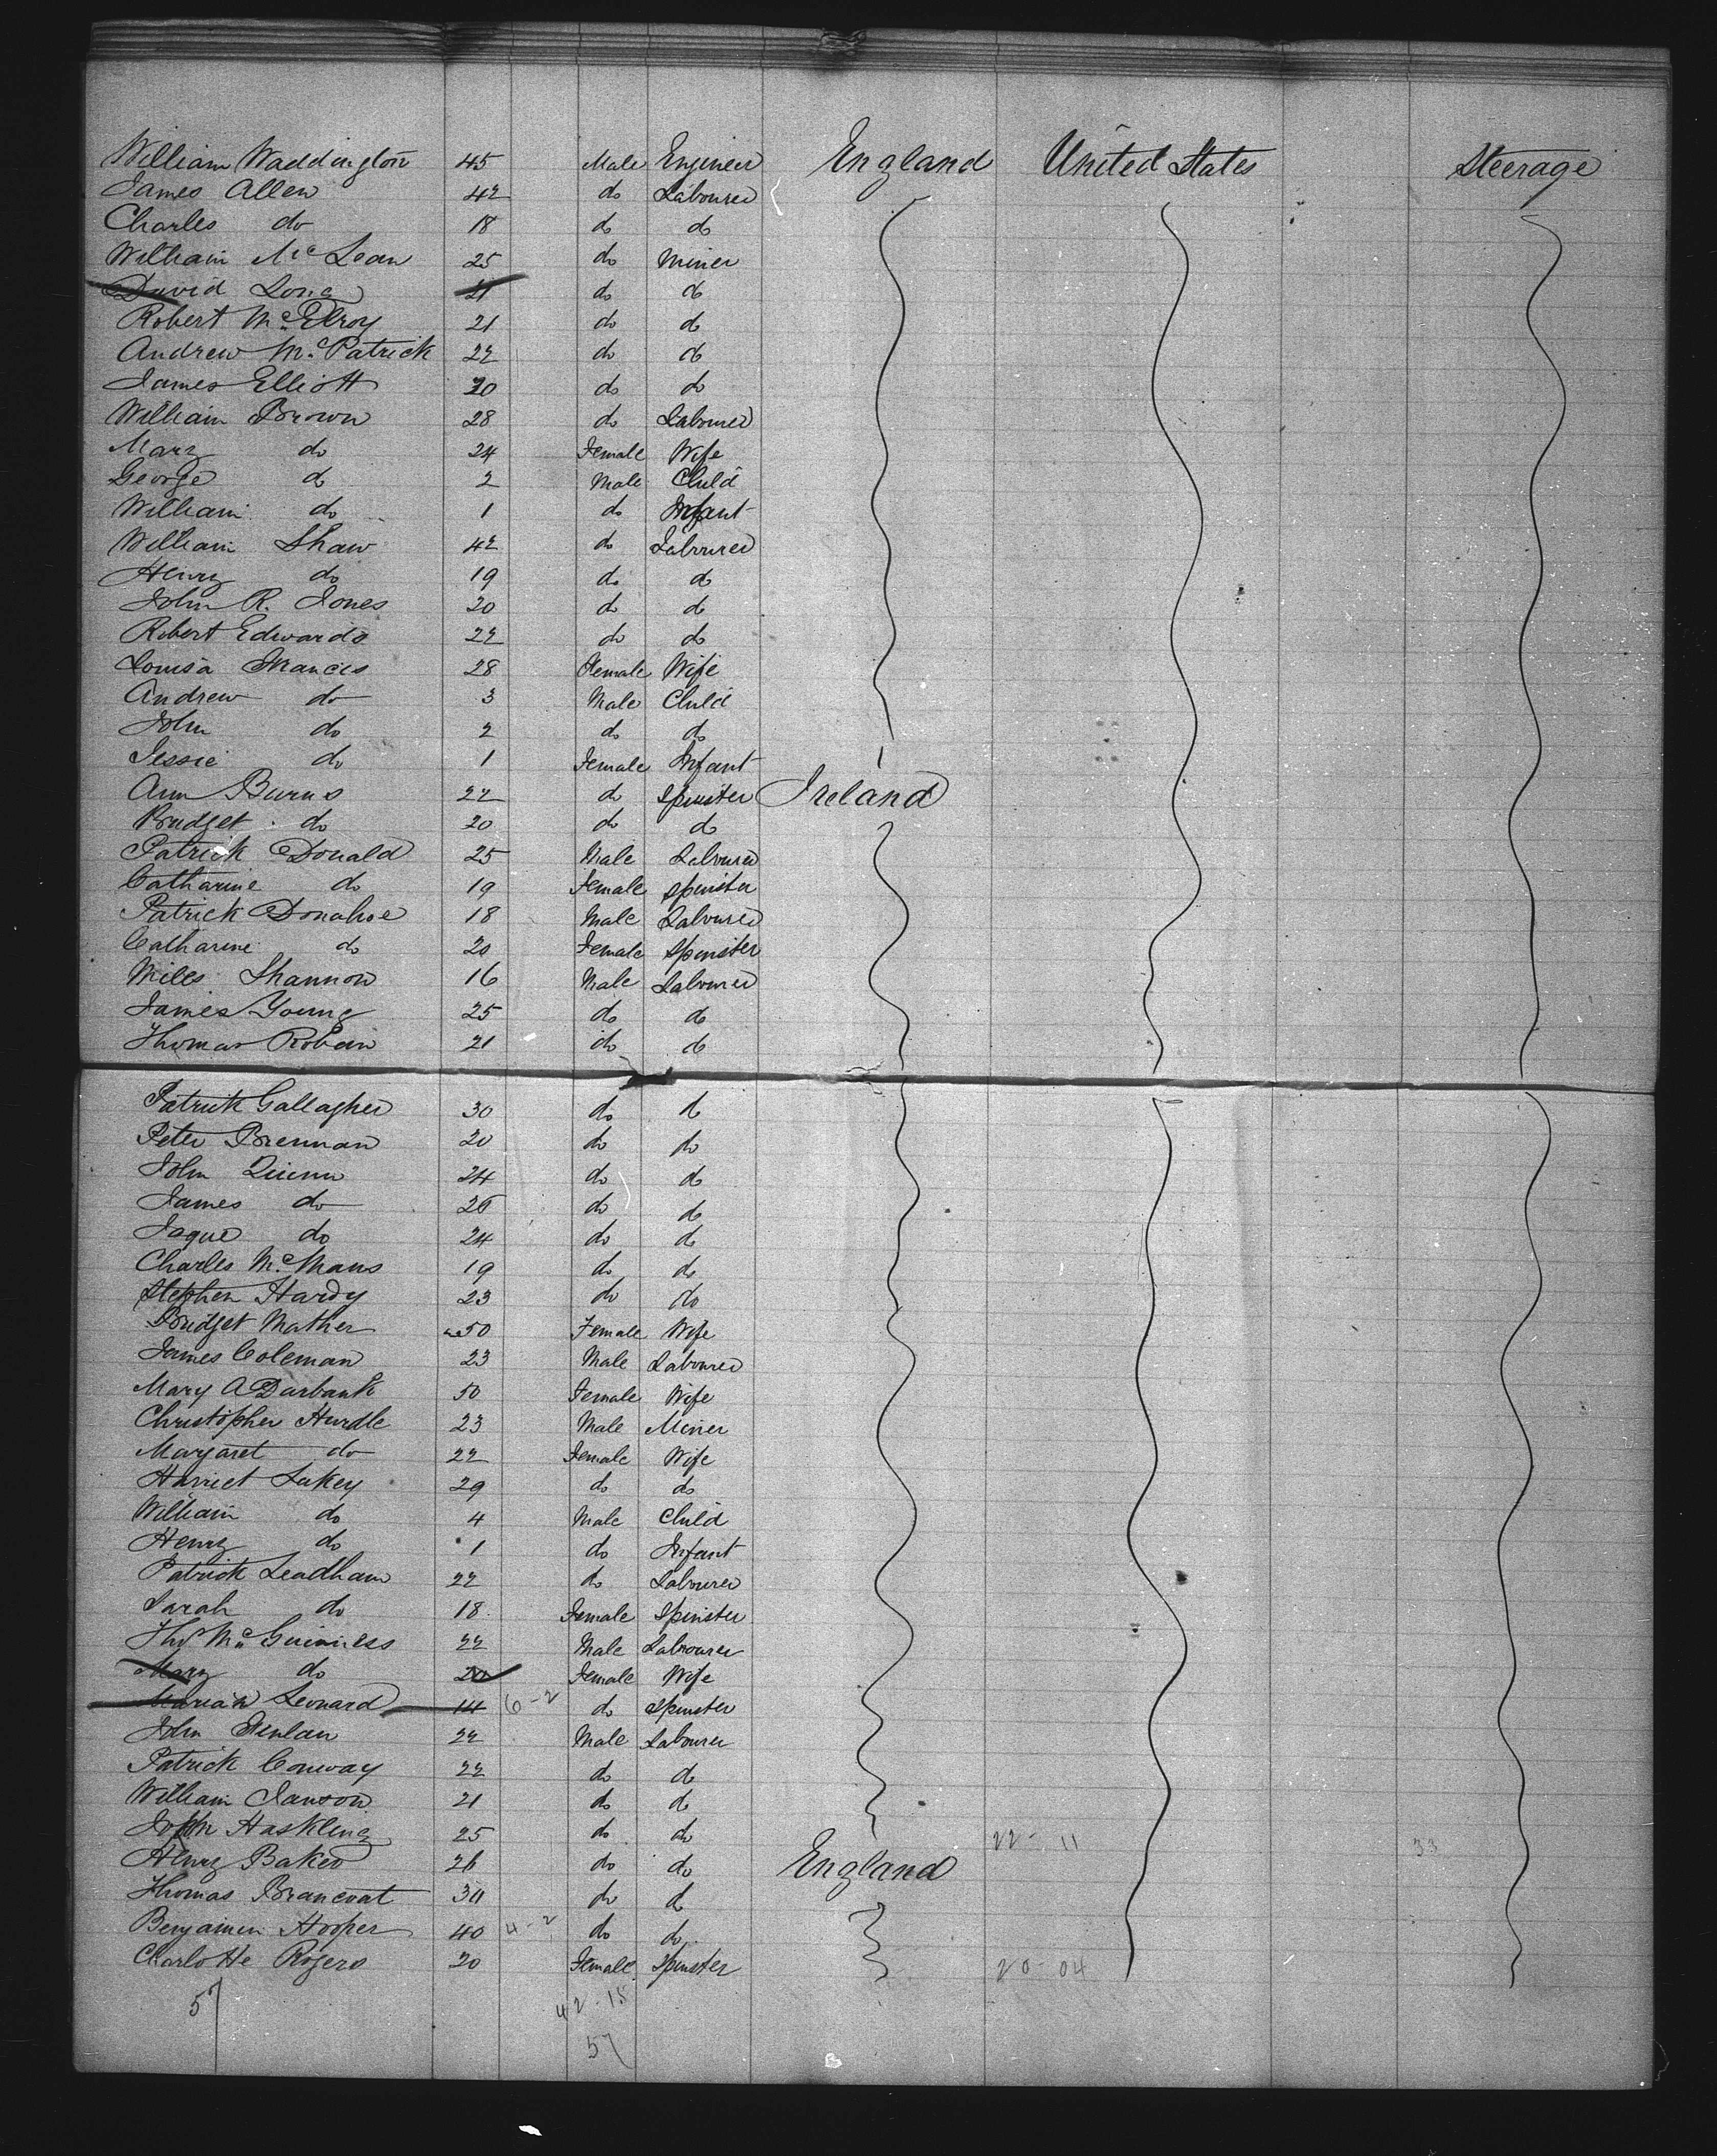 William Waddington 45 Male Engineer England United States Steerage
James Allen 42 do Labourer
Charles do 18 do do
William McLean 25 do Miner
David Long 21 do do
Robert McElroy 21 do do
Andrew McPatrick 22 do do
James Elliott 20 do do
William Brown 28 do Labourer
Mary do 24 Female Wife
George do 2 Male Child
William do 1 do Infant
William Shaw 42 do Labourer
Henry do 19 do do
John R. Jones 20 do do
Robert Edwards 22 do do
Louisa Francis 28 Female Wife
Andrew do 3 Male Child
John do 2 do do
Jessie do 1 Female Infant
Ann Burns 22 do Spinster Ireland
Bridget do 20 do do
Patrick Donald 25 Male Labourer
Catharine do 19 Female Spinster
Patrick Donahoe 18 Male Labourer
Catharine do 20 Female Spinster
Miles Shannon 16 Male Labourer
James Young 25 do do
Thomas 21 do do
Patrick Gallagher 30 do do
Peter Brennan 20 do do
John Quinn 24 do do
James do 26 do do
do 24 do do
Charles McManus 19 do do
Stephen Hardy 23 do do
Bridget Mather 50 Female Wife
James Coleman 23 Male Labourer
Mary A Darbank 50 Female Wife
Christopher Hurdle 23 Male Miner
Margaret do 22 Female Wife
Harriet Lakey 29 do do
William do 4 Male Child
Henry do 1 do Infant
Patrick Leadham 22 do Labourer
Sarah do 18 Female Spinster
Thos McGuinness 22 Male Labourer
Mary do 20 Female Wife
Mariah Leonard 14 6-2 do Spinster
John 22 Male Labourer
Patrick Conway 22 do do
William Janson 21 do do
John 25 do do 22-11 33
Henry Baker 26 do do England
Thomas Brancoat 30 do do
Benjamin Hooper 40 4-2 do do
Charlotte Rogers 20 Female Spinster 20-04
57 42-15
57